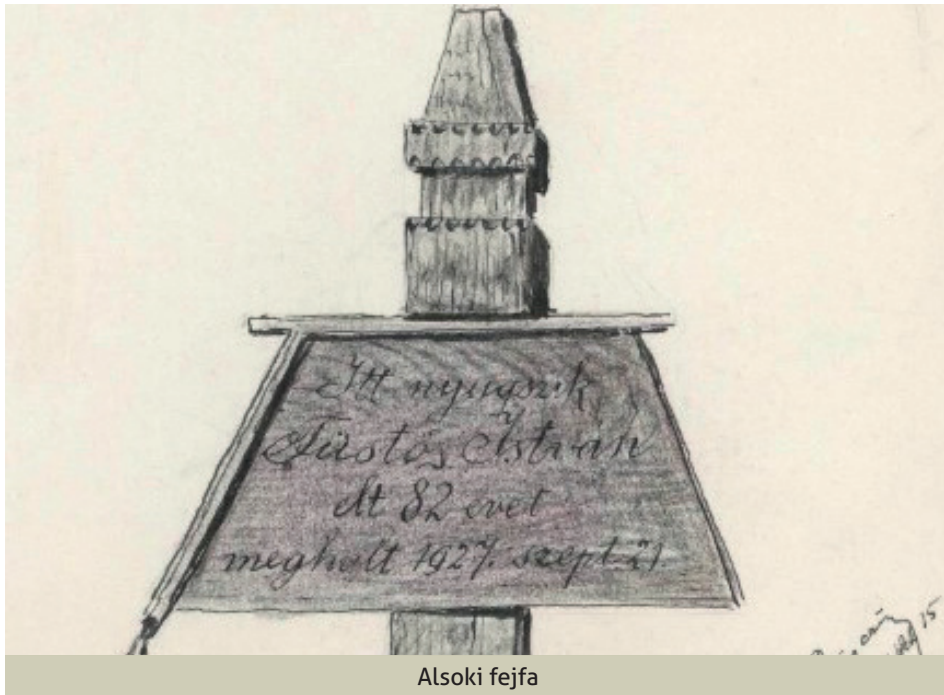 Itt nyugszik
Füstös István
élt 82 evet
meghalt 1927. szept 21
15
Alsoki fejfa